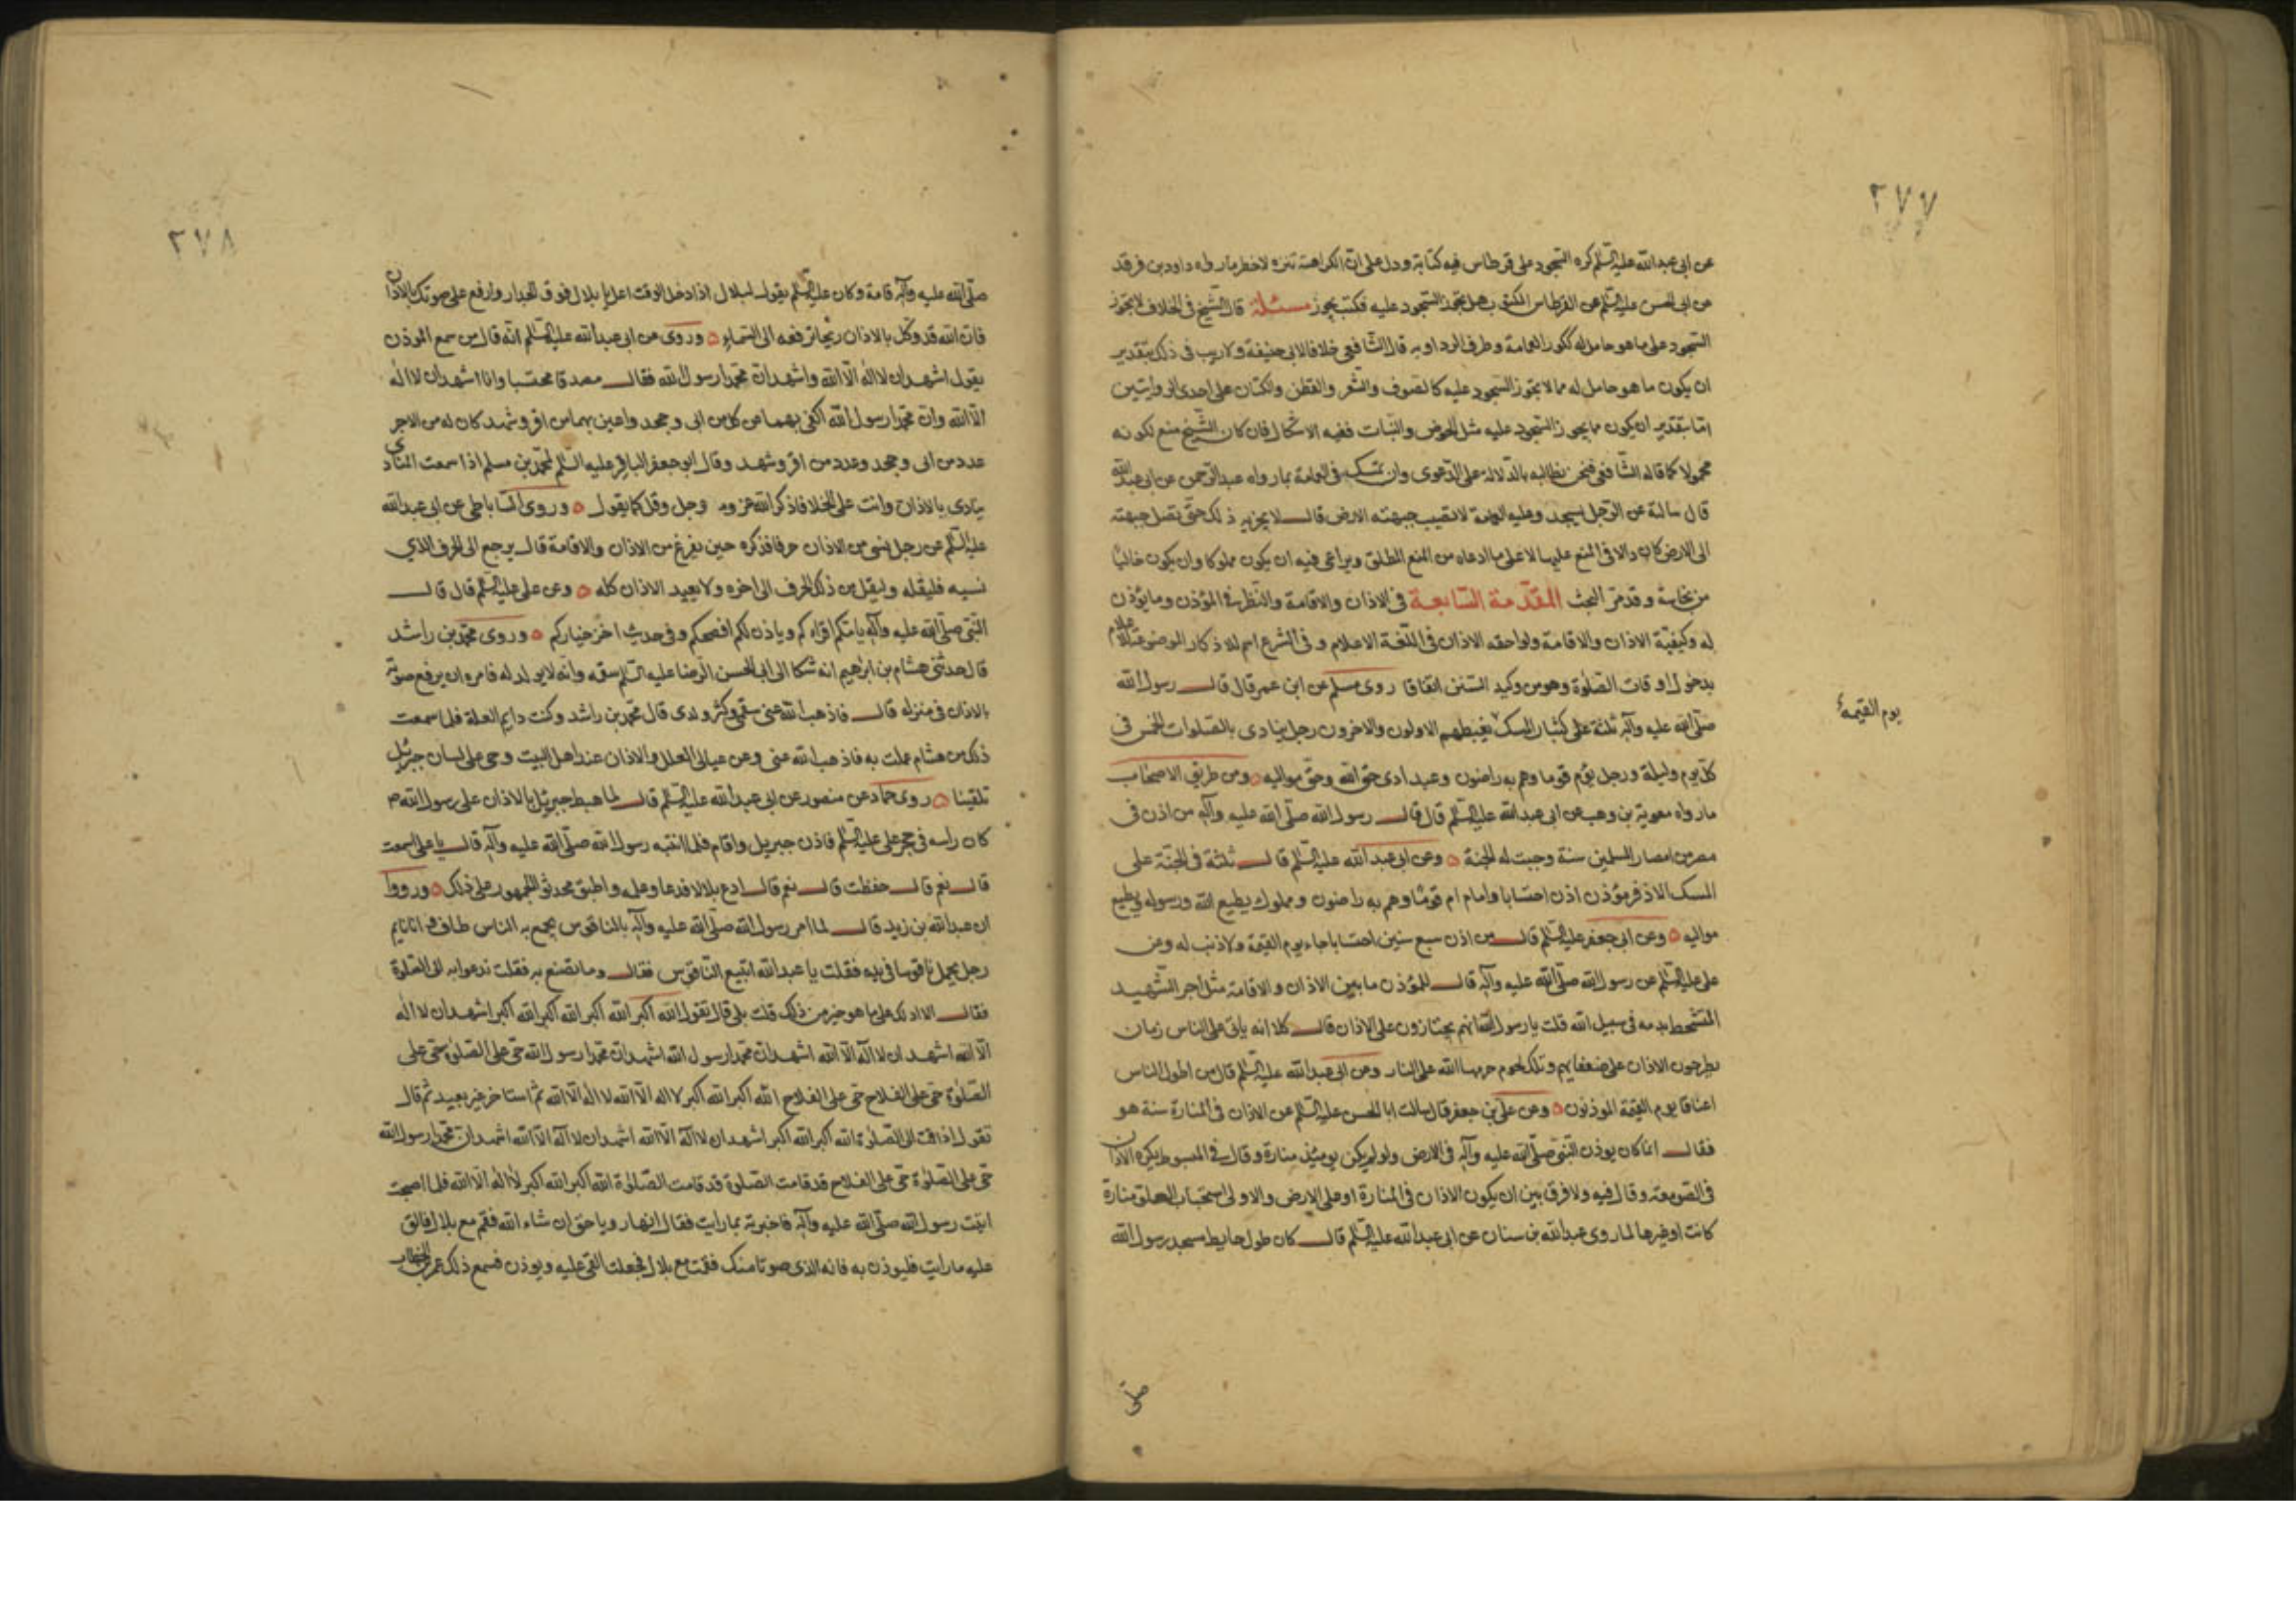 ٢٧٧
عن ابى عبدالله عليه السّلم كره السّجود على قرطاس فيه كتابة ودل على انّ الكراهة تنزه لاحظر مارواه داود بن فرقد
عن ابى الحسن عليه السّلم عن القرطاس المكتوب هل يجوز السّجود عليه فكتب يجوز مسئلة قال الشّيخ فى الخلاف لا يجوز
السّجود على ما هو حامل له ككور العمامة وطرف الرداء وبه قال الشّافعى خلافا لابى حنيفة ولا ريب فى ذلك بتقدير
ان يكون ما هو حامل له مما لا يجوز السّجود عليه كالصّوف والشّعر والقطن والكتان على احدى الروايتين
امّا بتقدير ان يكون مما يجوز السّجود عليه مثل الخوص والنّبات ففيه الاشكال فان كان الشّيخ منع لكونه
محمولا كما قاله الشّافعى فنحن نطالبه بالدّلالة على الدّعوى وان تمسّك فى العمامة بما رواه عبدالرّحمن عن ابى عبدالله
قال سالته عن الرّجل يسجد وعليه العمامة لا تصيب جبهته الارض قال لا يجزيه ذلك حتّى تصل جبهته
الى الارض كان دالا فى المنع عليها لا على ما ادعاه من المنع المطلق ويراعى فيه ان يكون مملوكا وان يكون خاليًا
من نجاسة وقد مرّ البحث المقدّمة السّابعة فى الاذان والاقامة والنّظر فى المؤذن وما يؤذن
له وكيفيّة الاذان والاقامة ولواحقه الاذان فى اللّغة الاعلام وفى الشّرع اسم للاذكار الموضوعة للاعلام
بدخول اوقات الصّلوة وهو من وكيد السّنن اتفاقا روى مسلم عن ابن عمر قال قال رسول الله
صلّى الله عليه وآله ثلثة على كثبان المسك يغبطهم الاولون والاخرون رجل ينادى بالصّلوات الخمس فى
يوم القيمة
كلّ يوم وليلة ورجل يؤم قوما وهم به راضون وعبد ادى حقّ الله وحقّ مواليه ومن طريق الاصحاب
مارواه معوية بن وهب عن ابى عبدالله عليه السّلم قال قال رسول الله صلّى الله عليه وآله من اذن فى
مصر من امصار المسلمين سنة وجبت له الجنة وعن ابى عبدالله عليه السّلم قال ثلثة فى الجنّة على
المسك الاذفر مؤذن اذن احتسابا وامام ام قومًا وهم به راضون ومملوك يطيع الله ورسوله ويطيع
مواليه وعن ابى جعفر عليه السّلم قال من اذن سبع سنين احتسابا جاء يوم القيمة ولا ذنب له وعن
على عليه السّلم عن رسول الله صلّى الله عليه وآله قال للمؤذن ما بين الاذان والاقامة مثل اجر الشّهيد
المتشحط بدمه فى سبيل الله قلت يا رسول الله انهم يجتازون على الاذان قال كلا انه ياتى على الناس زمان
يطرحون الاذان على ضعفايهم وتلك لحوم حرمها الله على النار وعن ابى عبدالله عليه السّلم قال من اطول الناس
اعناقا يوم القيمة الموذنون وعن علىّ بن جعفر قال سالت ابا الحسن عليه السّلم عن الاذان فى المنارة سنة هو
فقال انما كان يوذن النّبى صلّى الله عليه وآله فى الارض ولو لم يكن يومئذ منارة وقال فى المبسوط يكره الاذان
فى الصّومعة وقال فيه ولا فرق بين ان يكون الاذان فى المنارة او على الارض والاولى استحباب العلو منارة
كانت او غيرها لما روى عبدالله بن سنان عن ابى عبدالله عليه السّلم قال كان طول حايط مسجد رسول الله
صلّى
٢٧٨
صلّى الله عليه وآله قامة وكان عليه السّلم يقول لبلال اذا دخل الوقت اعل يا بلال فوق الجدار وارفع على صوتك بالاذان
فان الله قد وكّل بالاذان ريحا ترفعه الى السّماء وروى عن ابى عبدالله عليه السّلم انّه قال من سمع الموذن
يقول اشهد ان لا اله الّا الله واشهد انّ محمّدا رسول الله فقال مصدقا محتسبا وانا اشهد ان لا اله
الّا الله وانّ محمّدا رسول الله اكفى بهما من كل من ابى وجحد واعين بهما من اقر وشهد كان له من الاجر
عدد من ابى وجحد وعدد من اقر وشهد وقال ابو جعفر الباقر عليه السّلم لمحمّد بن مسلم اذا سمعت المنادى
ينادى بالاذان وانت على الخلا فاذكر الله عزوجل وقل كما يقول وروى السّاباطى عن ابى عبدالله
عليه السّلم عن رجل نسى من الاذان حرفا فذكره حين يفرغ من الاذان والاقامة قال يرجع الى الحرف الذي
نسيه فليقله وليقل من ذلك الحرف الى اخره ولا يعيد الاذان كله وعن على عليه السّلم قال قال
النّبى صلّى الله عليه وآله يامكم اقراءكم وياذن لكم افصحكم وفى حديث اخر خياركم وروى محمّد بن راشد
قال حدثنى هشام بن ابرهيم انه شكا الى ابى الحسن الرّضا عليه السّلم سقمه وانه لا يولد له فامره ان يرفع صوته
بالاذان فى منزله قال فاذهب الله عنى سقمى وكثر ولدى قال محمّد بن راشد وكنت دايم العلة فلما سمعت
ذلك من هشام عملت به فاذهب الله عنى وعن عيالى العلل والاذان عند اهل البيت وحى على لسان جبرئيل
تلقينا روى حماد عن منصور عن ابى عبدالله عليه السّلم قال لما هبط جبرئيل بالاذان على رسول الله ص
كان راسه فى حجر على عليه السّلم فاذن جبريل واقام فلما انتبه رسول الله صلّى الله عليه وآله قال يا على اسمعت
قال نعم قال حفظت قال نعم قال ادع بلالا فدعا وعلمه واطبق محدثو الجمهور على ذلك ورووا
ان عبدالله بن زيد قال لما امر رسول الله صلّى الله عليه وآله بالناقوس يجمع به الناس طاف بى وانا نايم
رجل يحمل ناقوسا فى يده فقلت يا عبدالله اتبيع النّاقوس فقال وما تصنع به فقلت ندعوا به الى الصّلوة
فقال الا ادلك على ما هو خير من ذلك قلت بلى قال تقول الله اكبر الله اكبر الله اكبر الله اكبر اشهد ان لا اله
الّا الله اشهد ان لا اله الّا الله اشهد انّ محمّدا رسول الله اشهد انّ محمّدا رسول الله حىّ على الصّلوة حىّ على
الصّلوة حىّ على الفلاح حىّ على الفلاح الله اكبر الله اكبر لا اله الّا الله لا اله الّا الله ثم استاخر غير بعيد ثم قال
تقول اذا قمت الى الصّلوة الله اكبر الله اكبر اشهد ان لا اله الّا الله اشهد ان لا اله الّا الله اشهد انّ محمّدا رسول الله
حىّ على الصّلوة حىّ على الفلاح قد قامت الصّلوة قد قامت الصّلوة الله اكبر الله اكبر لا اله الّا الله فلما اصبحت
اتيت رسول الله صلّى الله عليه وآله فاخبرته بما رايت فقال انها رويا حق ان شاء الله فقم مع بلال فالق
عليه ما رايت فليوذن به فانه اندى صوتا منك فقمت مع بلال فجعلت القى عليه ويوذن فسمع ذلك عمر بن الخطاب